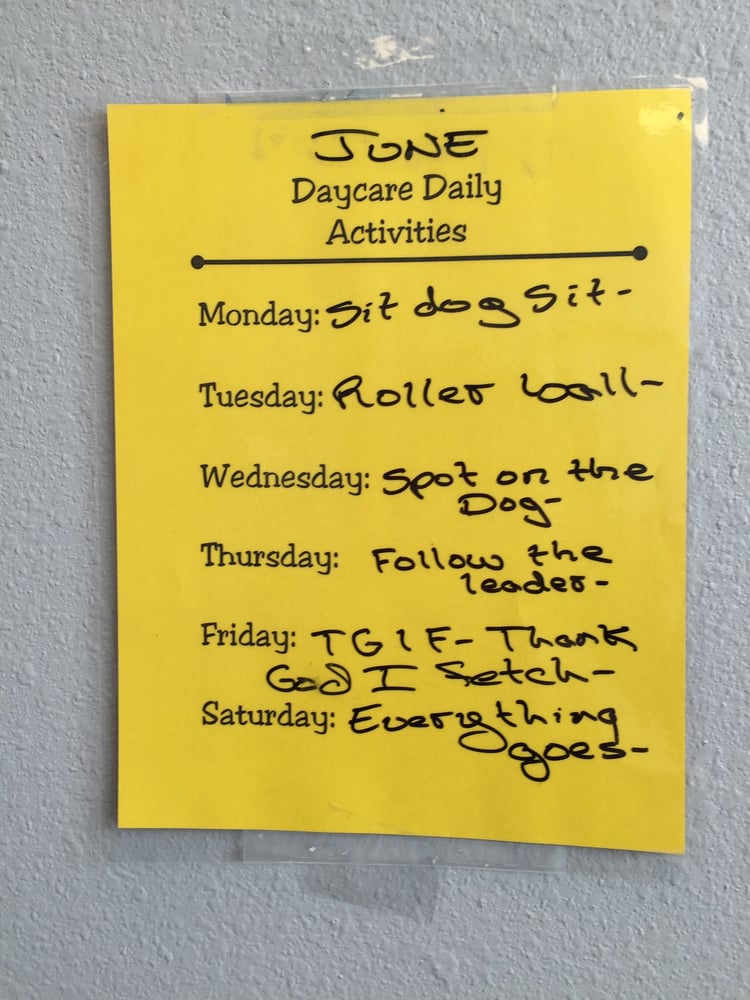 JUNE
Daycare Daily
Activities
Monday: Sit dog Sit-
Tuesday: Roller ball-
Wednesday: Spot on the
Dog-
Thursday: Follow the
leader-
Friday: TGIF- Thank
God I Fetch-
Saturday: Everything
goes-